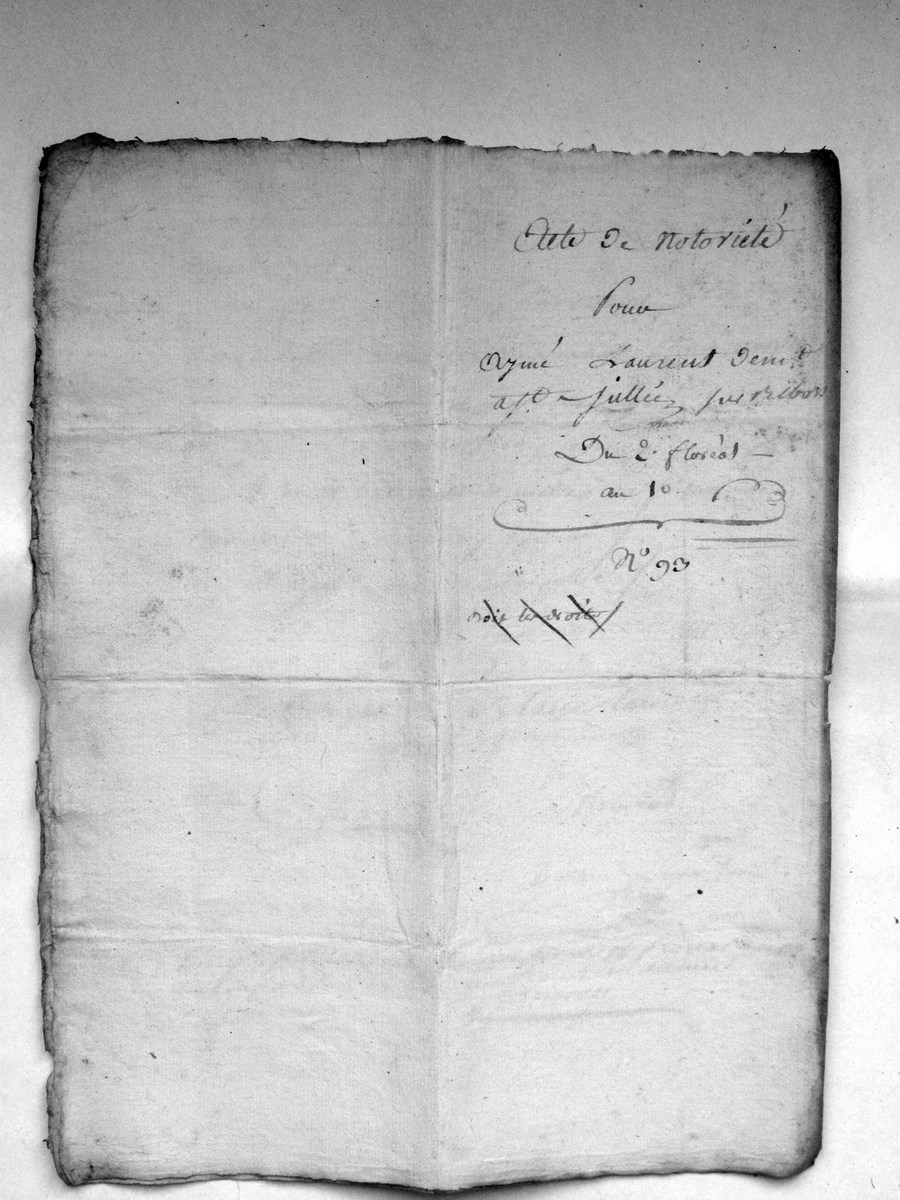 Acte de Notoriété
Pour
Aymé Laurent dem.t
a St Jullien sur
Du 2. floréal
an 10
N° 93
droits